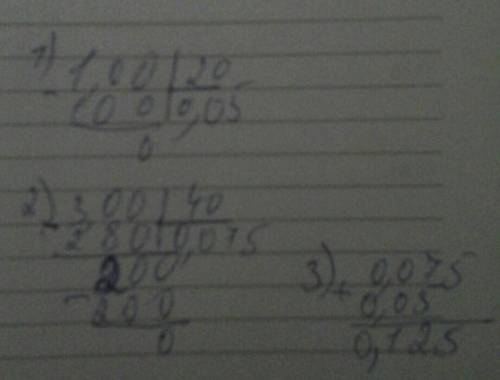 1) 1,00 | 20
- 100 | 0,05
0
2) 300 | 40
- 280 | 0,075
200
- 200
0
3) + 0,075
0,05
0,125